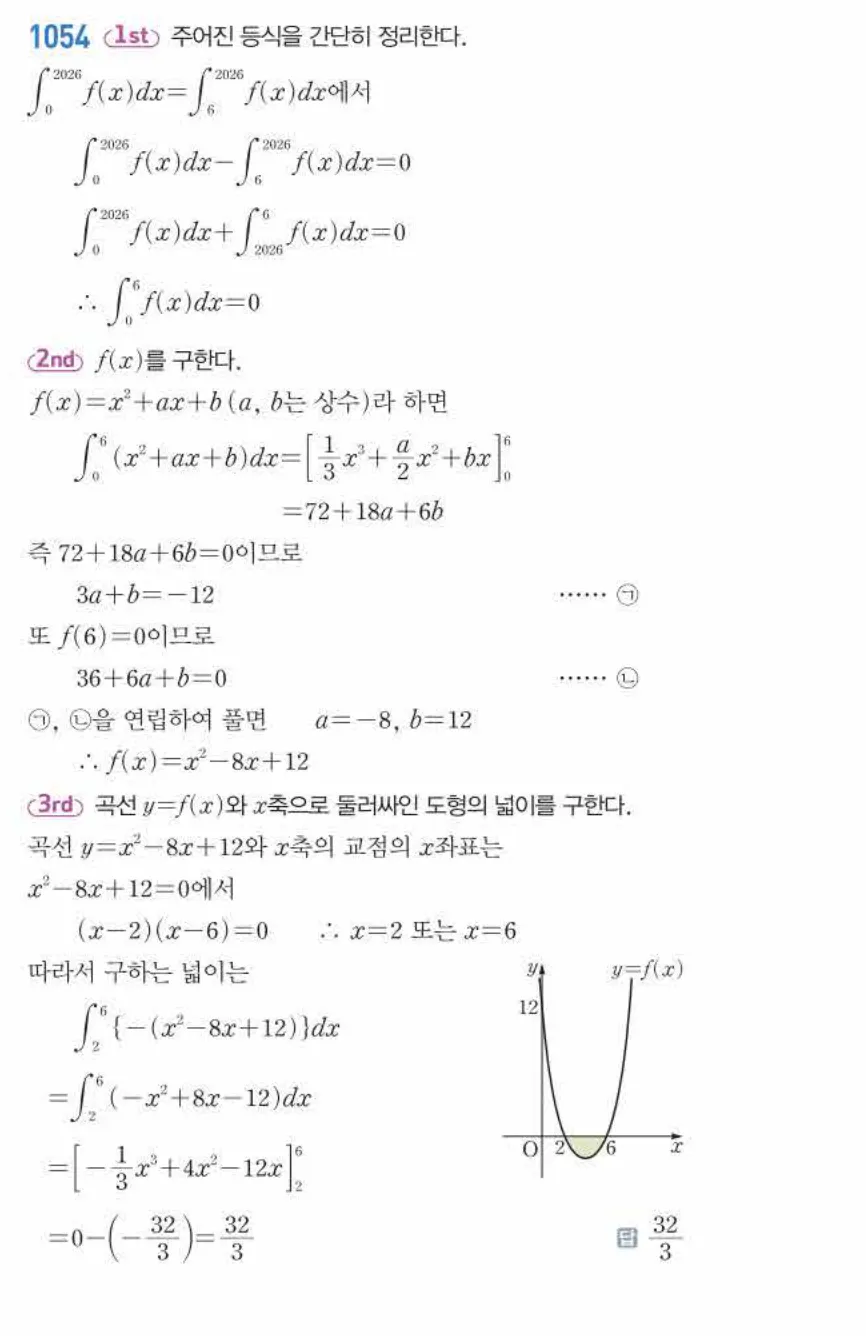 1054 1st 주어진 등식을 간단히 정리한다.
∫₀²⁰²⁶ f(x)dx=∫₆²⁰²⁶ f(x)dx에서
∫₀²⁰²⁶ f(x)dx−∫₆²⁰²⁶ f(x)dx=0
∫₀²⁰²⁶ f(x)dx+∫₂₀₂₆⁶ f(x)dx=0
∴ ∫₀⁶ f(x)dx=0
2nd f(x)를 구한다.
f(x)=x²+ax+b (a, b는 상수)라 하면
∫₀⁶ (x²+ax+b)dx=[1/3 x³+a/2 x²+bx]₀⁶
=72+18a+6b
즉 72+18a+6b=0이므로
3a+b=−12 …… ㉠
또 f(6)=0이므로
36+6a+b=0 …… ㉡
㉠, ㉡을 연립하여 풀면 a=−8, b=12
∴ f(x)=x²−8x+12
3rd 곡선 y=f(x)와 x축으로 둘러싸인 도형의 넓이를 구한다.
곡선 y=x²−8x+12와 x축의 교점의 x좌표는
x²−8x+12=0에서
(x−2)(x−6)=0 ∴ x=2 또는 x=6
따라서 구하는 넓이는
∫₂⁶ {−(x²−8x+12)}dx
=∫₂⁶ (−x²+8x−12)dx
=[−1/3 x³+4x²−12x]₂⁶
=0−(−32/3)=32/3
y y=f(x)
12
O 2 6 x
답 32/3